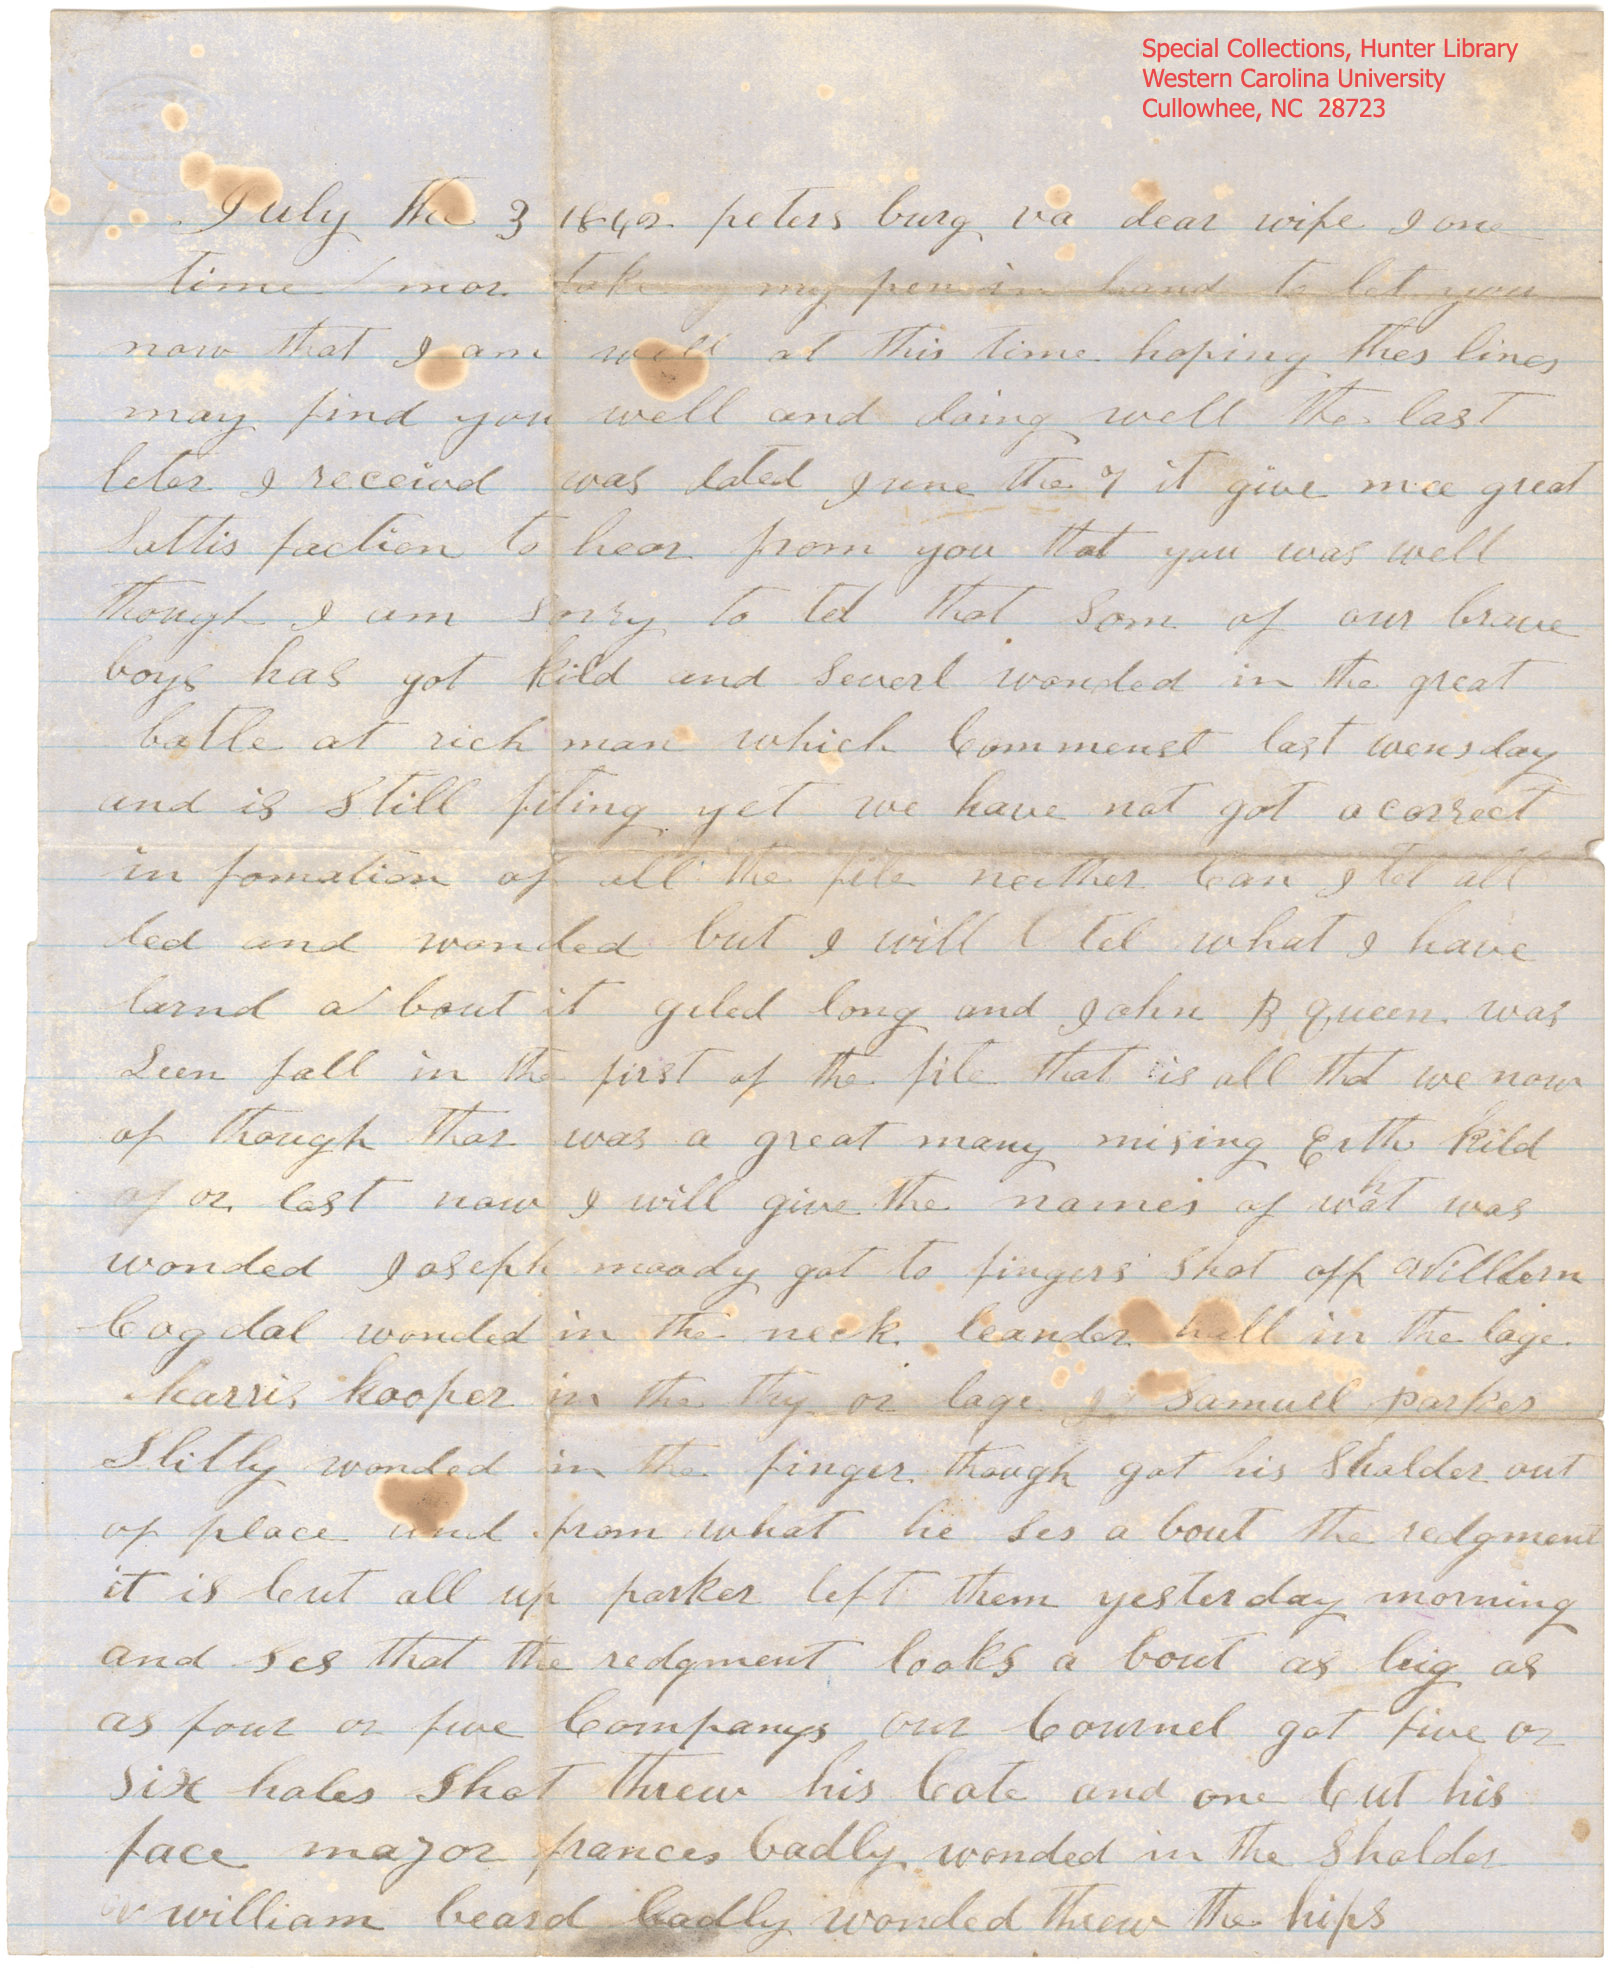 Special Collections, Hunter Library
Western Carolina University
Cullowhee, NC 28723
July the 3 1862 peters burg va dear wife I one
time mor take my pen in hand to let you
now that I am well at this time hoping thes lines
may find you well and doing well the last
leter I receivd was dated June the 7 it give mee great
Sattis faction to hear from you that you was well
though I am sorry to tel that som of our brave
boys has got kild and severl wonded in the great
batle at rich man which Commenst last wensday
and is still fiting yet we have not got a correct
in fomation of all the fite neither Can I tel all
led and wonded but I will tel what I have
larnd a bout it giled long and John B queen was
Seen fall in the first of the fite that is all that we now
of though thar was a great many mising Erther kild
or last now I will give the names of what was
wonded Joseph moody got to fingers shot off
Cogdal wonded in the neck leander hall in the lage
harris hooper in the thy or lage Samuel parker
Slitly wonded in the finger though got his Sholder out
of place and from what he ses a bout the redgment
it is Cut all up parker left them yesterday morning
and ses that the redgment looks a bout as big as
as four or five Companys our Cournel got five or
six holes shot threw his Cote and one Cut his
face major frances badly wonded in the sholder
william beard badly wonded threw the hips